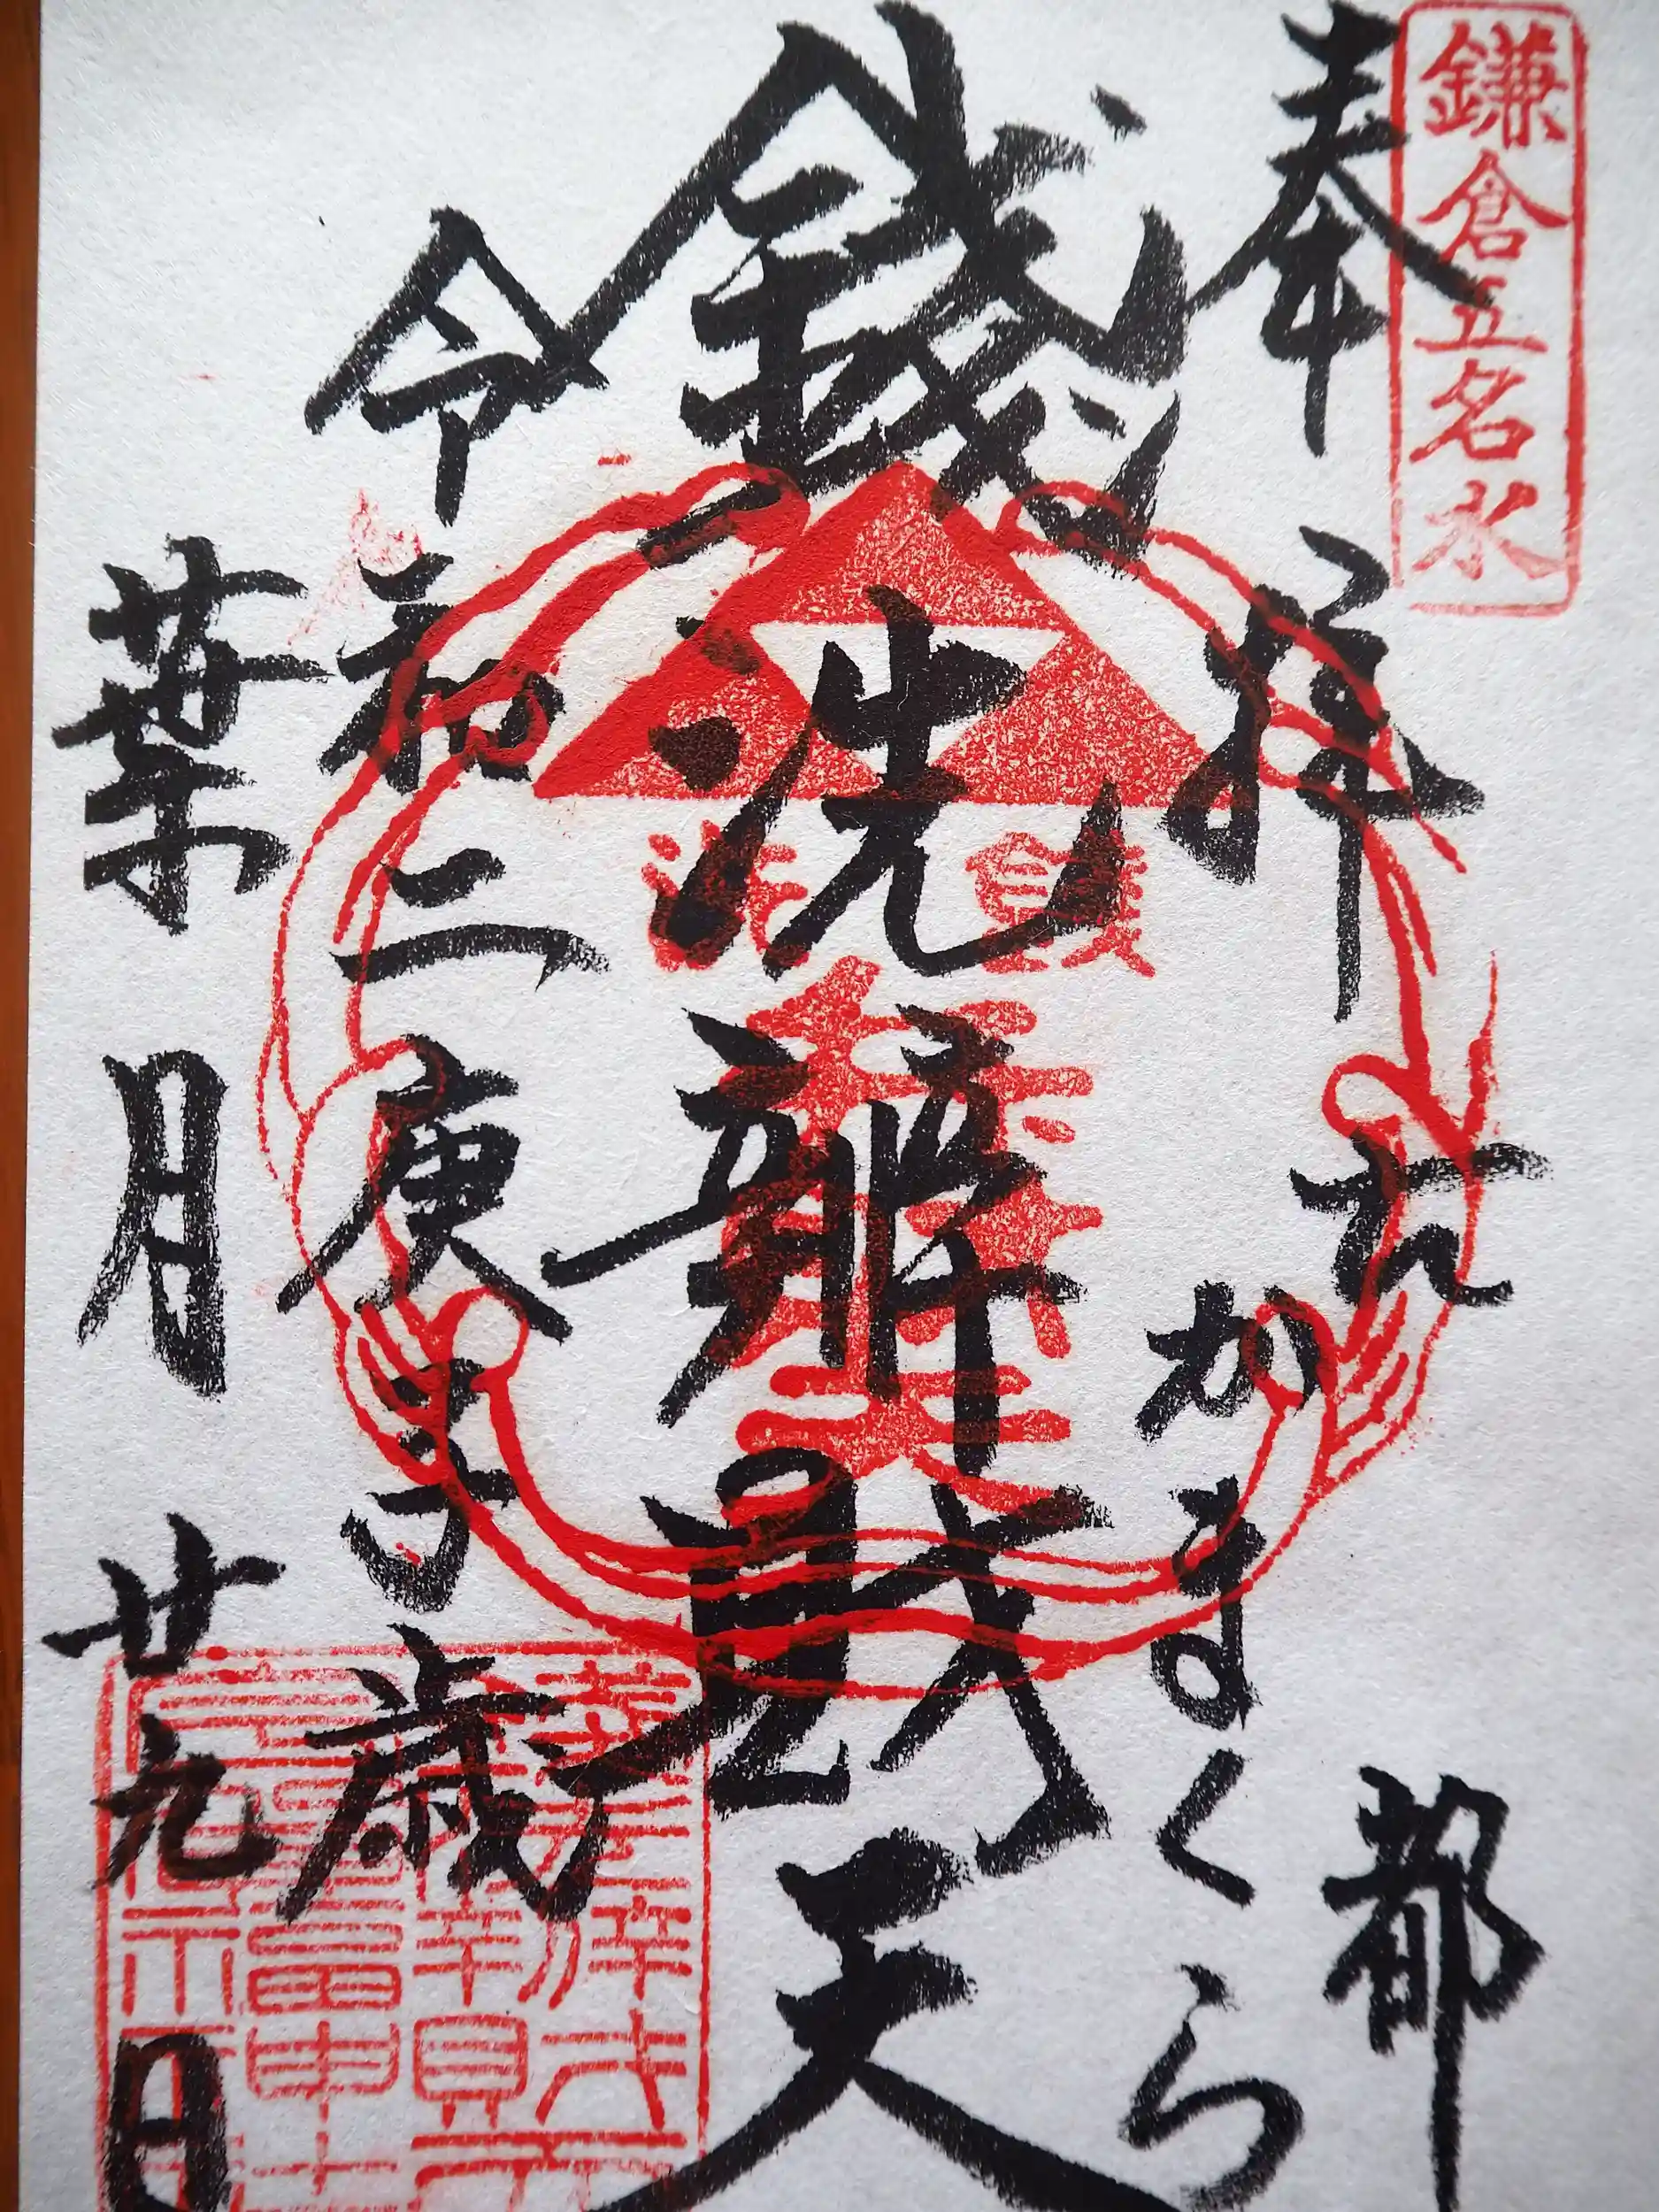 鎌倉五名水
奉拝
古都
かまくら
銭洗辯財天
令和二庚子歳
葉月廿九日